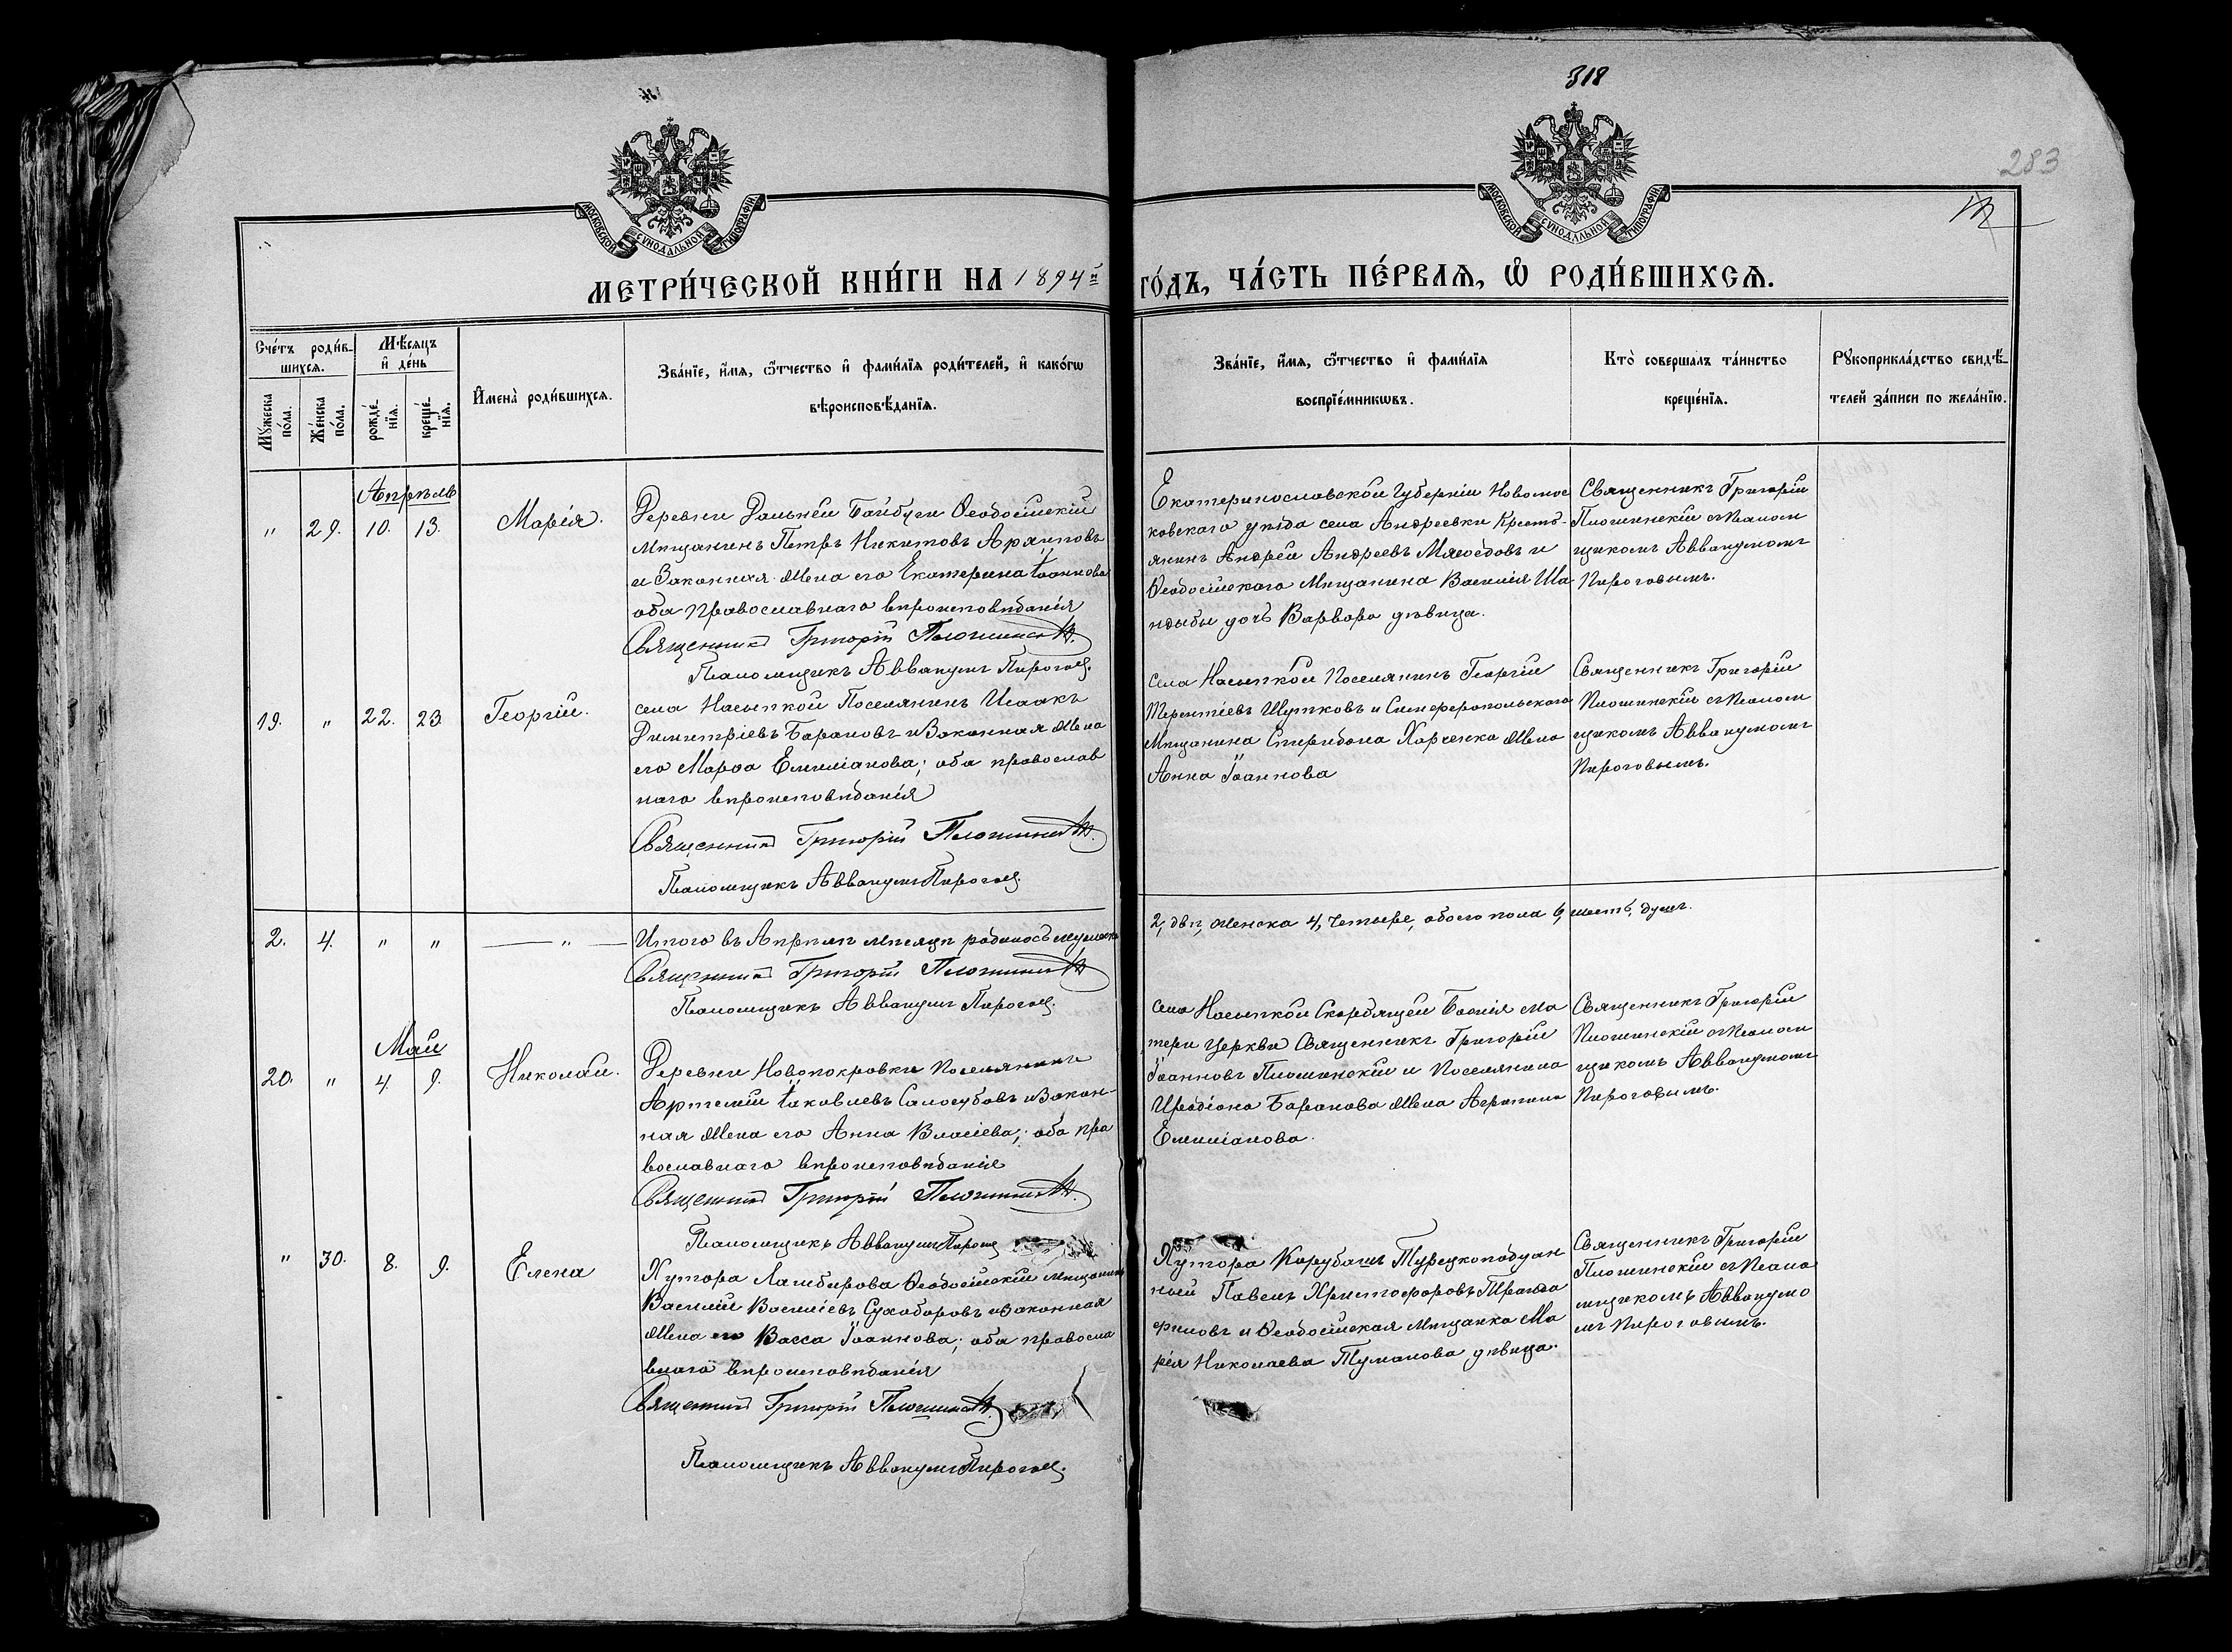 318
283
МОСКОВСКОЙ СѴНОДАЛЬНОЙ ТИПОГРАФІИ
МОСКОВСКОЙ СѴНОДАЛЬНОЙ ТИПОГРАФІИ
МЕТРИ́ЧЕСКОЙ КНИ́ГИ НА 1894й ГО́ДЪ, ЧА́СТЬ ПЕ́РВАѦ, Ѡ҆ РОДИ́ВШИХСѦ.
Сче́тъ роди́в-
шихсѧ.
Мꙋжеска по́ла.
Же́нска по́ла.
Мѣ́сѧцъ
и҆ де́нь
рожде́-
нїѧ.
креще́-
нїѧ.
И҆мена̀ роди́вшихсѧ.
Зва́нїе, и҆́мѧ, ѻ҆́тчество и҆ фами́лїѧ роди́телей, и҆ како́гѡ
вѣроисповѣ́данїѧ.
Зва́нїе, и҆́мѧ, ѻ҆́тчество и҆ фами́лїѧ
воспрїе́мникѡвъ.
Кто̀ соверша́лъ та́инство
креще́нїѧ.
Рꙋкоприкла́дство свидѣ́-
телей за́писи по жела́нїю.
Апрѣль
" 29. 10. 13. Марія.
Деревни Дальней Байбуги Ѳеодосійскій
Мѣщанинъ Петръ Никитовъ Архиповъ
и Законная Жена его Екатерина Іоаннова
оба Православнаго вѣроисповѣданія
Священникъ Григорій Плотинскій.
Псаломщикъ Аввакумъ Пироговъ.
Екатеринославской Губерніи Новомос
ковскаго уѣзда села Андреевки Кресть-
янинъ Андрей Андреевъ Мясоѣдовъ и
Ѳеодосійскаго Мѣщанина Василія Ша
ндыбы дочь Варвара дѣвица.
Священникъ Григорій
Плотинскій съ Псалом
щикомъ Аввакумомъ
Пироговымъ.
19. " 22. 23. Георгій.
села Насыпкой Поселянинъ Исаакъ
Димитріевъ Барановъ и Законная Жена
его Марѳа Емиліанова; оба православ
наго вѣроисповѣданія
Священникъ Григорій Плотинскій.
Псаломщикъ Аввакумъ Пироговъ.
села Насыпкой Поселянинъ Георгій
Терентіевъ Шутковъ и Симферопольскаго
Мѣщанина Спиридона Харченка Жена
Анна Іоаннова
Священникъ Григорій
Плотинскій съ Псалом
щикомъ Аввакумомъ
Пироговымъ.
2. 4. " " — " —
Итого въ Апрѣлѣ мѣсяцѣ родилось мужеска
2, два, женска 4, четыре, обоего пола 6, шесть, душъ.
Священникъ Григорій Плотинскій
Псаломщикъ Аввакумъ Пироговъ.
Май
20. " 4. 9. Николай.
Деревни Новопокровки Поселянинъ
Артемій Іаковлевъ Самосубовъ и Закон-
ная Жена его Анна Власіева; оба пра
вославнаго вѣроисповѣданія
Священникъ Григорій Плотинскій.
Псаломщикъ Аввакумъ Пироговъ
села Насыпкой Скорбящей Божія Ма
тери Церкви Священникъ Григорій
Іоанновъ Плотинскій и Поселянина
Иродіона Баранова Жена Агрипина
Емиліанова.
Священникъ Григорій
Плотинскій съ Псалом
щикомъ Аввакумомъ
Пироговымъ.
" 30. 8. 9. Елена
Хутора Лагибирова Ѳеодосійскій мѣщанинъ
Василій Василіевъ Сухоборовъ и Законная
Жена его Васса Іоаннова; оба правосла
внаго вѣроисповѣданія
Священникъ Григорій Плотинскій.
Псаломщикъ Аввакумъ Пироговъ.
Хутора Карубашъ Турецкоподдан
ный Павелъ Христофоровъ
и Ѳеодосійская Мѣщанка Ма
рія Николаева Туманова дѣвица.
Священникъ Григорій
Плотинскій съ Псало
мщикомъ Аввакумо
мъ Пироговымъ.